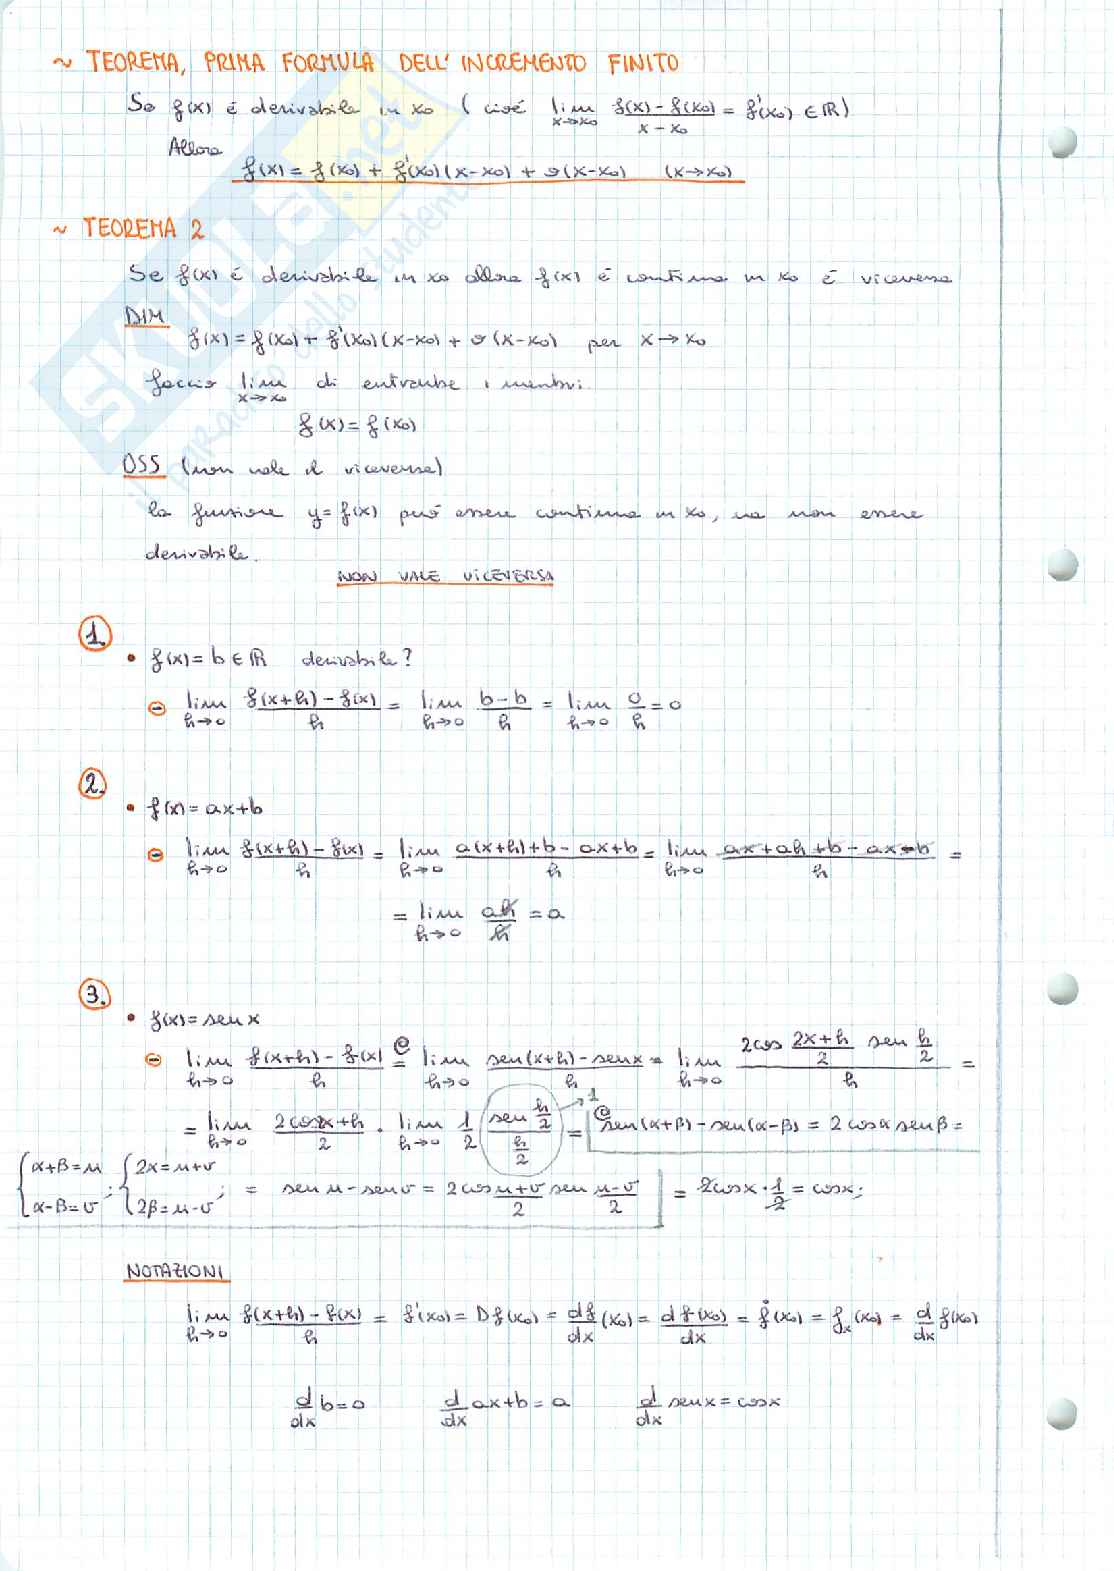 ~ TEOREMA, PRIMA FORMULA DELL'INCREMENTO FINITO
Se f(x) é derivabile in x₀ ( cioé lim x→x₀ (f(x) - f(x₀))/(x - x₀) = f'(x₀) ∈ ℝ)
Allora
f(x) = f(x₀) + f'(x₀)(x-x₀) + o(x-x₀) (x→x₀)
~ TEOREMA 2
Se f(x) é derivabile in x₀ allora f(x) é continua in x₀ é viceversa
DIM
f(x) = f(x₀) + f'(x₀)(x-x₀) + o(x-x₀) per x→x₀
faccio lim x→x₀ di entrambe i membri.
f(x) = f(x₀)
OSS (non vale il viceversa)
la funzione y = f(x) può essere continua in x₀, ma non essere
derivabile.
NON VALE VICEVERSA
1.
• f(x) = b ∈ ℝ derivabile?
lim h→0 (f(x+h) - f(x))/h = lim h→0 (b-b)/h = lim h→0 0/h = 0
2.
• f(x) = ax+b
lim h→0 (f(x+h) - f(x))/h = lim h→0 (a(x+h)+b - ax+b)/h = lim h→0 (ax+ah+b - ax-b)/h =
= lim h→0 ah/h = a
3.
• f(x) = sen x
lim h→0 (f(x+h) - f(x))/h =@ lim h→0 (sen(x+h) - sen x)/h = lim h→0 (2cos (2x+h)/2 sen h/2)/h =
= lim h→0 (2cos2x+h)/2 · lim h→0 1/2 (sen h/2)/(h/2) → 1 = @ sen(α+β) - sen(α-β) = 2 cosα senβ =
{α+β=μ α-β=v ; {2x=μ+v 2β=μ-v ; = sen μ - sen v = 2cos (μ+v)/2 sen (μ-v)/2 = 2cosx · 1/2 = cosx;
NOTAZIONI
lim h→0 (f(x+h) - f(x))/h = f'(x₀) = Df(x₀) = df/dx (x₀) = df(x₀)/dx = ḟ(x₀) = fₓ(x₀) = d/dx f(x₀)
d/dx b = 0 d/dx ax+b = a d/dx sen x = cos x
SKUOLA.net
il paradiso dello studente